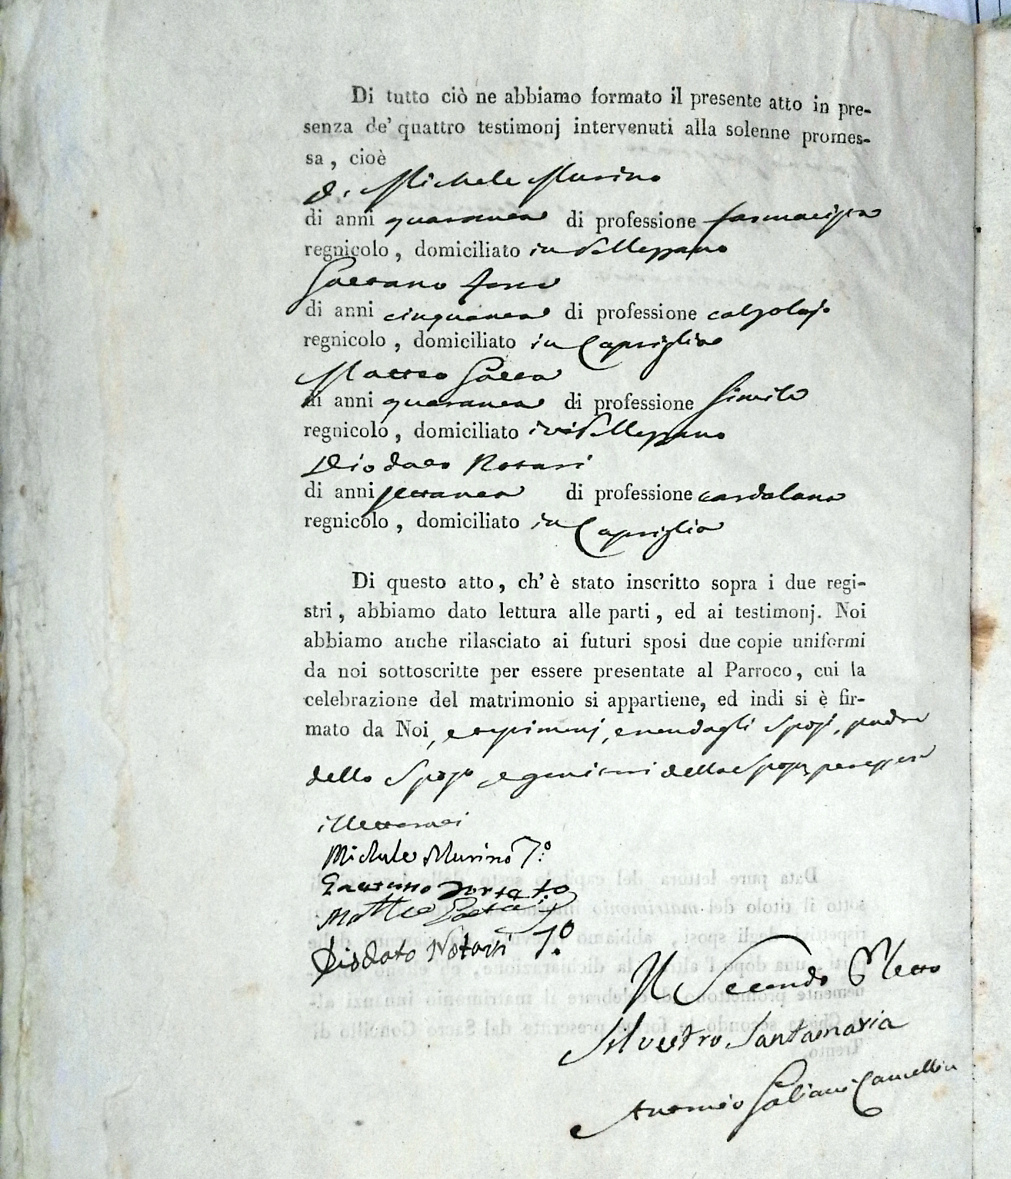 Di tutto ciò ne abbiamo formato il presente atto in pre-
senza de' quattro testimonj intervenuti alla solenne promes-
sa, cioè
D. Michele Murino
di anni quaranta di professione farmacista
regnicolo, domiciliato in Pellezzano
Gaetano
di anni cinquanta di professione calzolajo
regnicolo, domiciliato in Capriglia
Matteo Gaeta
di anni quaranta di professione simile
regnicolo, domiciliato in Pellezzano
Diodato Notari
di anni settanta di professione cardalana
regnicolo, domiciliato in Capriglia
Di questo atto, ch' è stato inscritto sopra i due regi-
stri, abbiamo dato lettura alle parti, ed ai testimonj. Noi
abbiamo anche rilasciato ai futuri sposi due copie uniformi
da noi sottoscritte per essere presentate al Parroco, cui la
celebrazione del matrimonio si appartiene, ed indi si è fir-
mato da Noi, e testimonj, e non dagli Sposi, padre
dello Sposo, e genitori della Sposa, per essere
illetterati
Michele Murino T.º
Gaetano T.º
Matteo Gaeta
Diodato Notari T.º
Il Secondo Eletto
Silvestro Santamaria
Antonio Galiani Cancelliere